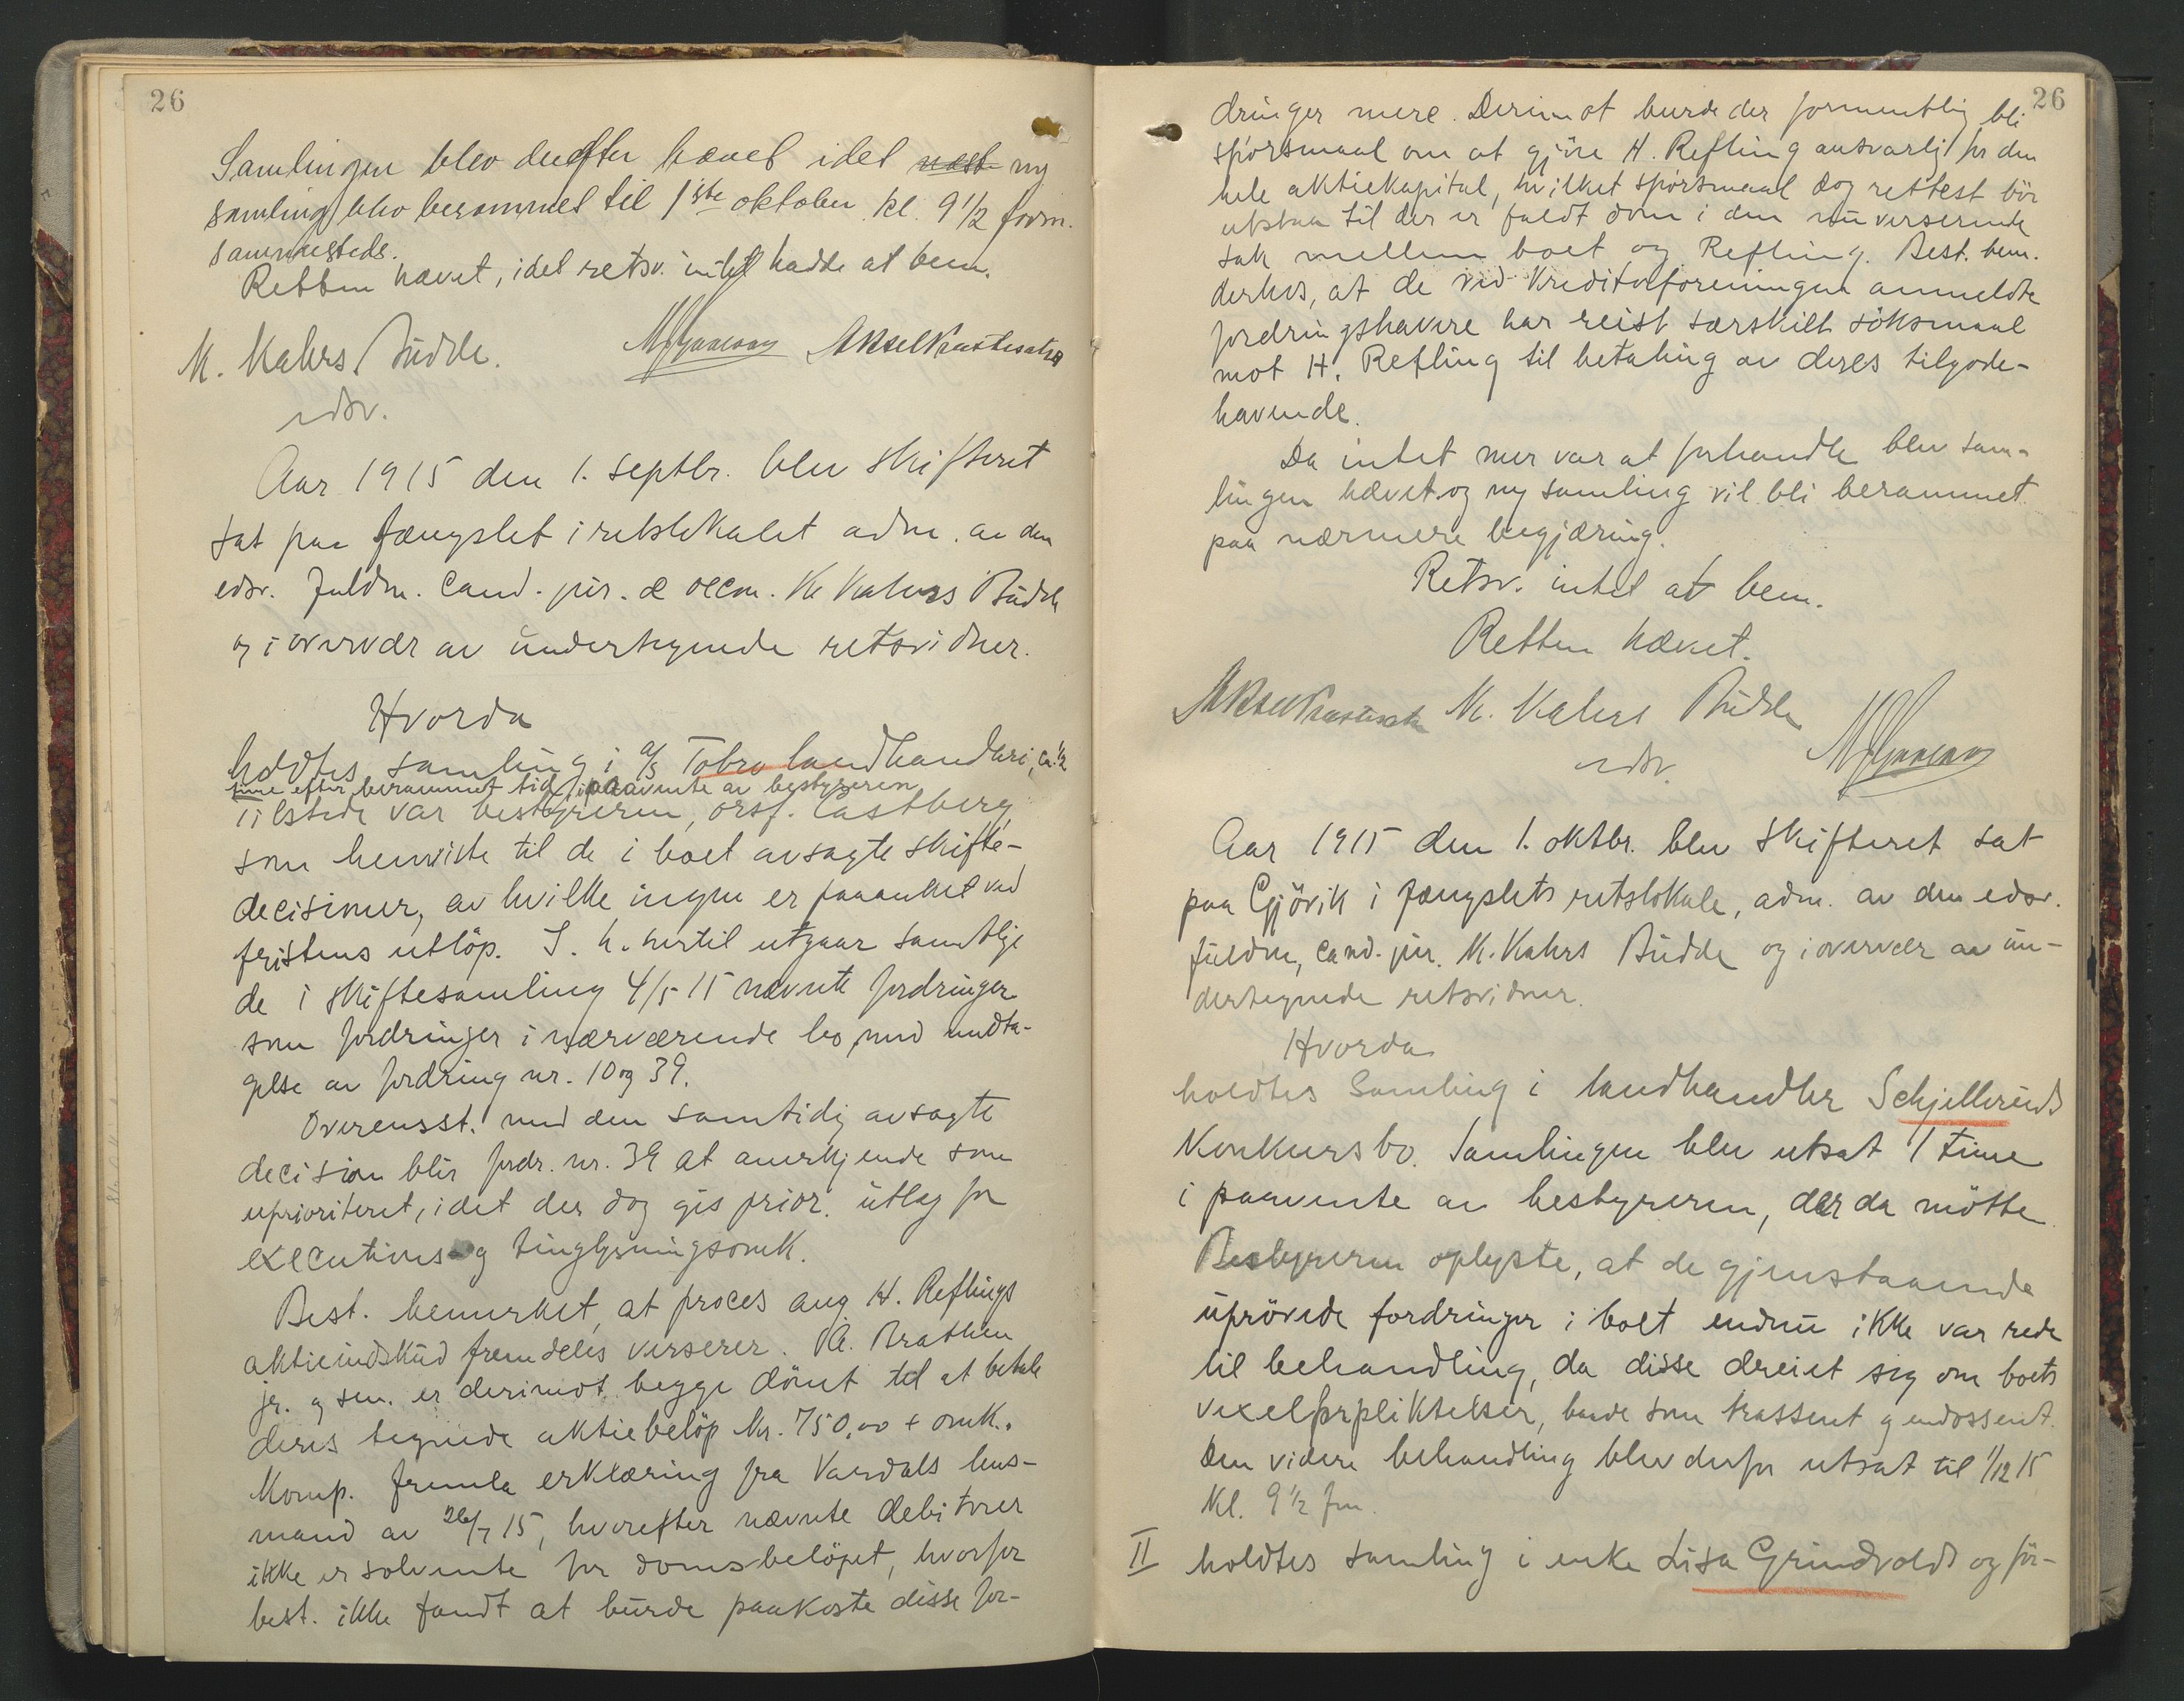 26
Samlingen blev derefter hævet idet næste ny
samling blev berammet til 1ste oktober kl. 9 1/2 form.
sammesteds.
Retten hævet, idet retsv. intet hadde at bem.
K. Kahrs Budde.
edsv.
Aar 1915 den 1. septbr. blev skifteret
sat paa fængslet i retslokalet adm. av den
edsv. fuldm. cand. jur. & oecon. K. Kahrs Budde
og i overvær av undertegnede retsvidner.
Hvorda
holdtes samling i A/S Tobro landhandleri, ca. 1/2
time efter berammet tid, i paavente av bestyreren
Tilstede var bestyreren, orsf. Castberg,
som henviste til de i boet avsagte skifte-
decisioner, av hvilke ingen er paaanket ved
fristens utløp. I h. hertil utgaar samtlige
de i skiftesamling 4/5 15 nævnte fordringer
som fordringer i nærværende bo, med undta-
gelse av fordring nr. 10 og 39.
Overensst. med den samtidig avsagte
decision blir fordr. nr. 39 at anerkjende som
uprioriteret, idet der dog gis prior. utlæg for
executions- og tinglysningsomk.
Best. bemerket, at proces ang. H. Reflings
aktieindskud fremdeles verserer. A. Brathen
jr. og sen. er derimot begge dömt til at betale
deres tegnede aktiebelöp kr. 750,00 + omk.
Komp. fremla erklæring fra Vardals lens-
mand av 26/7 15, hvorefter nævnte debitorer
ikke er solvente for domsbelöpet, hvorfor
best. ikke fandt at burde paakoste disse for-
26
dringer mere. Derimot burde der formentlig bli
spörsmaal om at gjöre H. Refling ansvarlig for den
hele aktiekapital, hvilket spörsmaal dog rettest bör
utstaa til der er faldt dom i den nu verserende
sak mellem boet og Refling. Best. bem.
derhos, at de ved Kreditorforeningen anmeldte
fordringshavere har reist særskilt söksmaal
mot H. Refling til betaling av deres tilgode-
havende.
Da intet mer var at forhandle blev sam-
lingen hævet og ny samling vil bli berammet
paa nærmere begjæring.
Retsv. intet at bem.
Retten hævet.
K. Kahrs Budde
edsv.
Aar 1915 den 1. oktbr. blev skifteret sat
paa Gjövik i fængslets retslokale, adm. av den edsv.
fuldm, cand. jur. K. Kahrs Budde og i overvær av un-
dertegnede retsvidner.
Hvorda
holdtes Samling i landhandler Schjelleruds
Konkursbo. Samlingen blev utsat 1 time
i paavente av bestyreren, der da mötte.
Bestyreren oplyste, at de gjenstaaende
uprövede fordringer i boet endnu ikke var rede
til behandling, da disse dreiet sig om boets
vexelforpliktelser, baade som trassent og endossent.
Den videre behandling blev derfor utsat til 1/12 15
Kl. 9 1/2 fm.
II holdtes samling i enke Lisa Grindvolds og för-